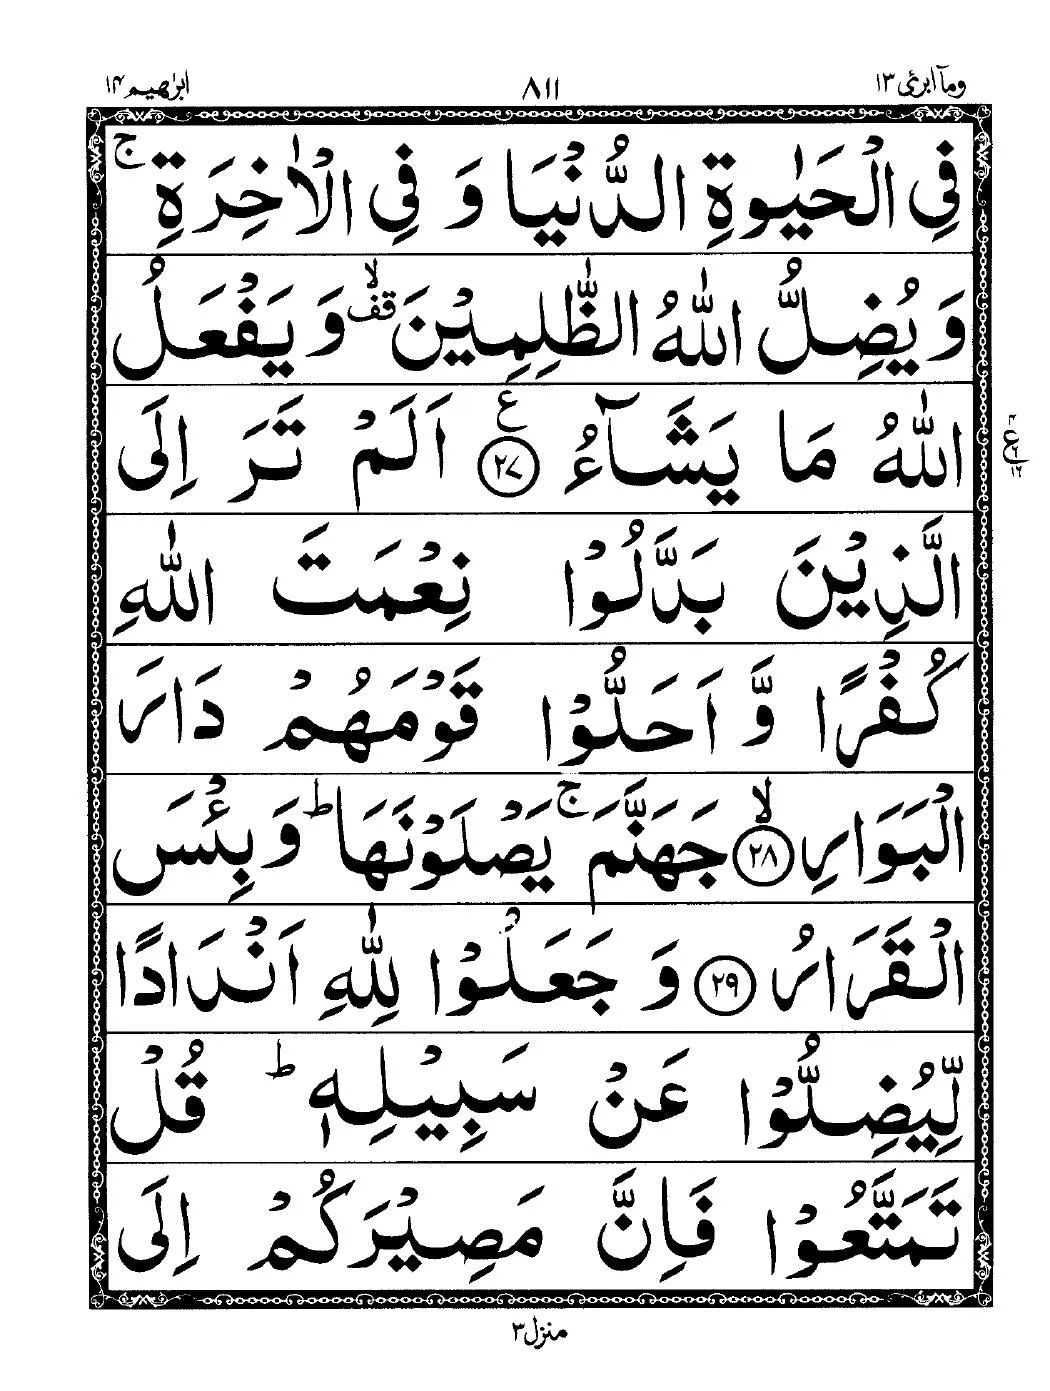 ومآ ابرئ ١٣ ٨١١ ابرٰهيم ١٤
فِي الْحَيٰوةِ الدُّنْيَا وَ فِي الْاٰخِرَةِ ۚ
وَ يُضِلُّ اللّٰهُ الظّٰلِمِيْنَ ۙقف وَ يَفْعَلُ
اللّٰهُ مَا يَشَآءُ ﴿٢٧﴾ ع اَلَمْ تَرَ اِلَى
الَّذِيْنَ بَدَّلُوْا نِعْمَتَ اللّٰهِ
كُفْرًا وَّ اَحَلُّوْا قَوْمَهُمْ دَارَ
الْبَوَارِ ﴿٢٨﴾ ۙ جَهَنَّمَ ۚ يَصْلَوْنَهَا ؕ وَ بِئْسَ
الْقَرَارُ ﴿٢٩﴾ وَ جَعَلُوْا لِلّٰهِ اَنْدَادًا
لِّيُضِلُّوْا عَنْ سَبِيْلِهٖ ؕ قُلْ
تَمَتَّعُوْا فَاِنَّ مَصِيْرَكُمْ اِلَى
منزل ٣